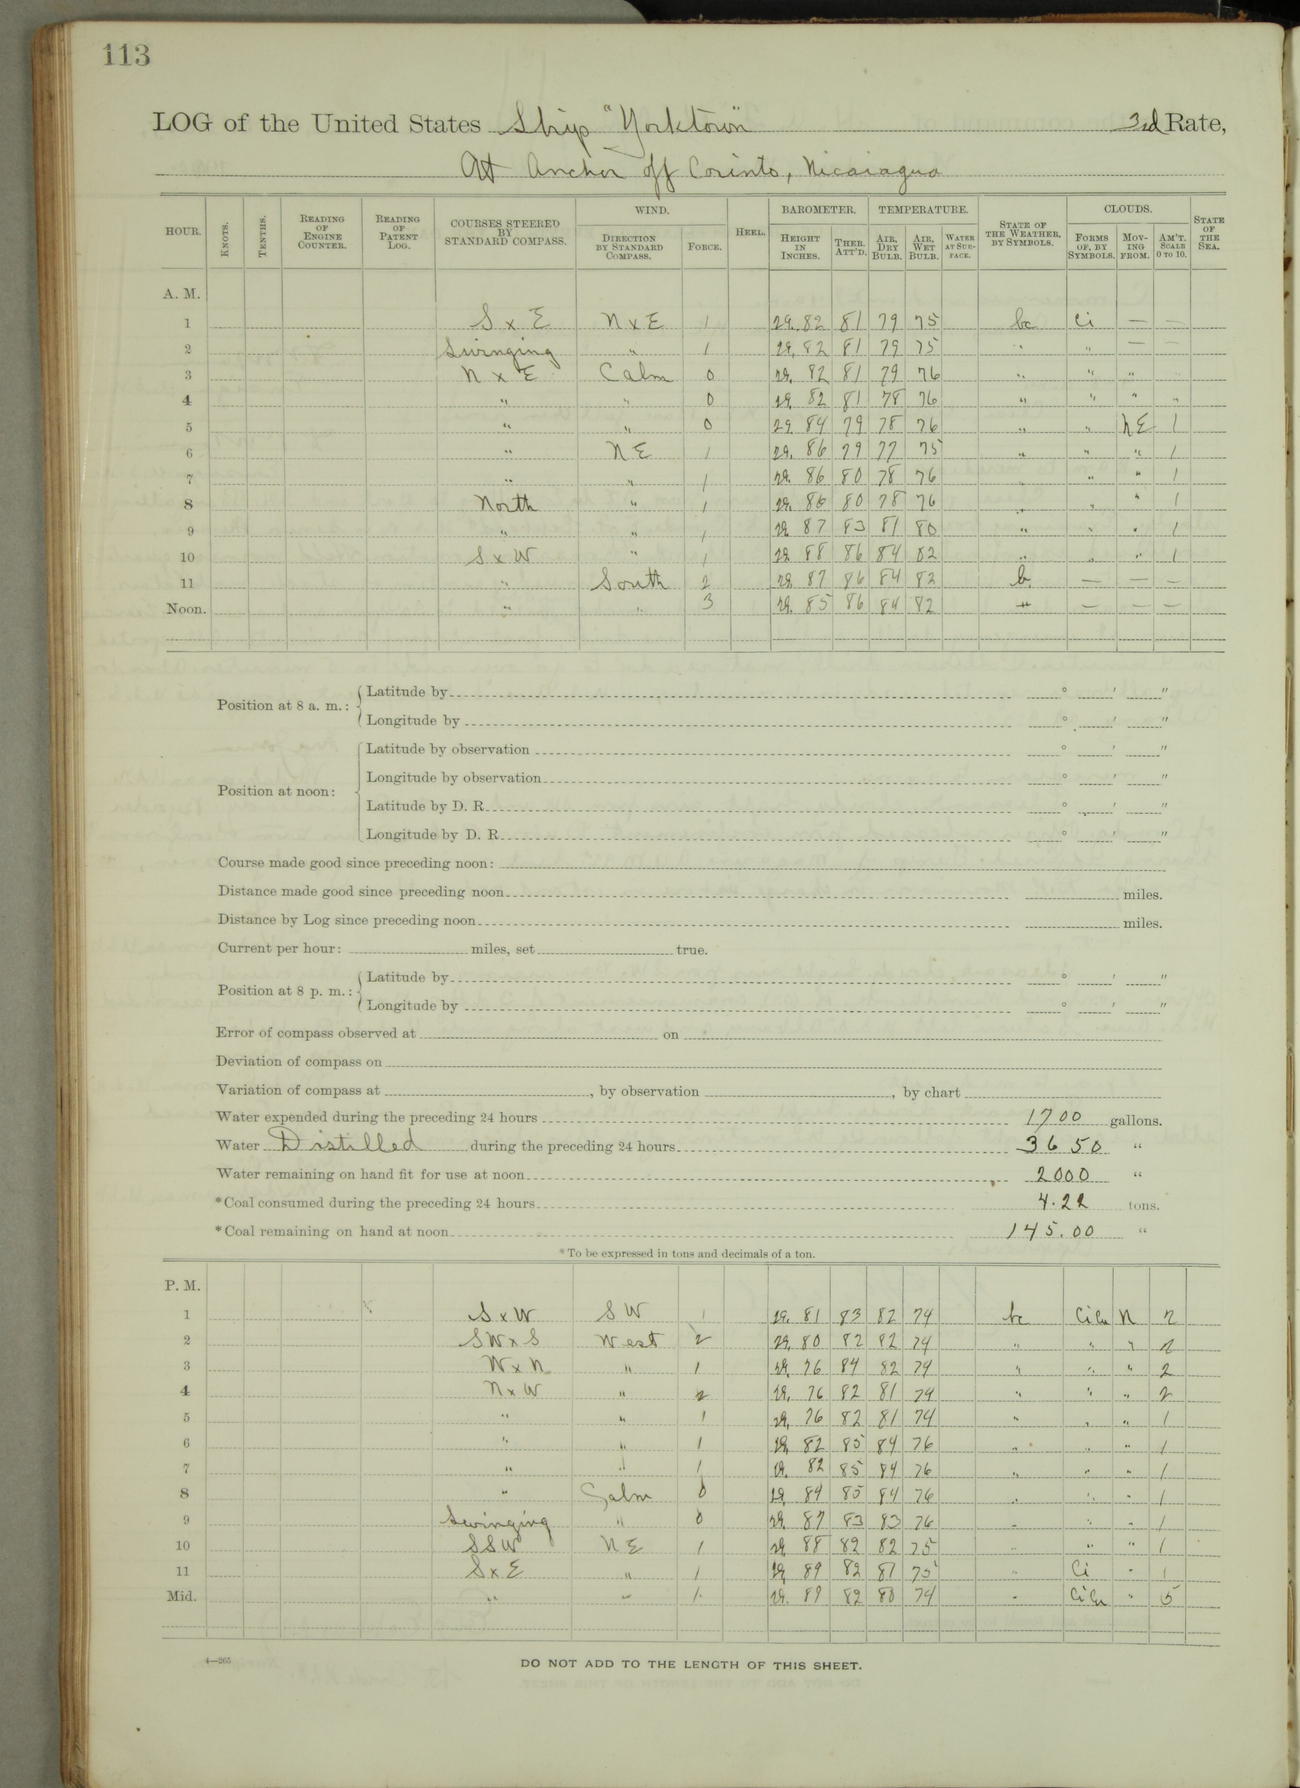 113
LOG of the United States Ship "Yorktown" 3rd Rate,
At Anchor off Corinto, Nicaragua
HOUR. KNOTS. TENTHS. READING OF ENGINE COUNTER. READING OF PATENT LOG. COURSES STEERED BY STANDARD COMPASS. WIND. DIRECTION BY STANDARD COMPASS. FORCE. HEEL. BAROMETER. HEIGHT IN INCHES. THER. ATT'D. TEMPERATURE. AIR, DRY BULB. AIR, WET BULB. WATER AT SURFACE. STATE OF THE WEATHER, BY SYMBOLS. CLOUDS. FORMS OF, BY SYMBOLS. MOVING FROM. AM'T. SCALE 0 TO 10. STATE OF THE SEA.
A. M.
1 S x E N x E 1 29.82 81 79 75 bc Ci — —
2 Swinging " 1 29.82 81 79 75 " " — —
3 N x E Calm 0 29.82 81 79 76 " " " "
4 " " 0 29.82 81 78 76 " " " "
5 " " 0 29.84 79 78 76 " " NE 1
6 " NE 1 29.86 79 77 75 " " " 1
7 " " 1 29.86 80 78 76 " " " 1
8 North " 1 29.86 80 78 76 " " " 1
9 " " 1 29.87 83 81 80 " " " 1
10 S x W " 1 29.88 86 84 82 " " " 1
11 " South 2 29.87 86 84 82 b. — — —
Noon. " " 3 29.85 86 84 82 " — — —
Position at 8 a. m.: Latitude by ° ' "
Longitude by ° ' "
Position at noon: Latitude by observation ° ' "
Longitude by observation ° ' "
Latitude by D. R. ° ' "
Longitude by D. R. ° ' "
Course made good since preceding noon:
Distance made good since preceding noon miles.
Distance by Log since preceding noon miles.
Current per hour: miles, set true.
Position at 8 p. m.: Latitude by ° ' "
Longitude by ° ' "
Error of compass observed at on
Deviation of compass on
Variation of compass at , by observation , by chart
Water expended during the preceding 24 hours 1700 gallons.
Water Distilled during the preceding 24 hours 3650 "
Water remaining on hand fit for use at noon 2000 "
*Coal consumed during the preceding 24 hours 4.22 tons.
*Coal remaining on hand at noon 145.00 "
*To be expressed in tons and decimals of a ton.
P. M.
1 S x W SW 1 29.81 83 82 74 bc CiCu N 2
2 SW x S West 2 29.80 82 82 74 " " " 2
3 W x N " 1 29.76 84 82 74 " " " 2
4 N x W " 2 29.76 82 81 74 " " " 2
5 " " 1 29.76 82 81 74 " " " 1
6 " " 1 29.82 85 84 76 " " " 1
7 " " 1 29.82 85 84 76 " " " 1
8 " Calm 0 29.84 85 84 76 " " " 1
9 Swinging " 0 29.87 83 83 76 " " " 1
10 SSW NE 1 29.88 82 82 75 " " " 1
11 S x E " 1 29.89 82 81 75 " Ci " 1
Mid. " " 1 29.89 82 80 74 " CiCu " 5
4—265
DO NOT ADD TO THE LENGTH OF THIS SHEET.